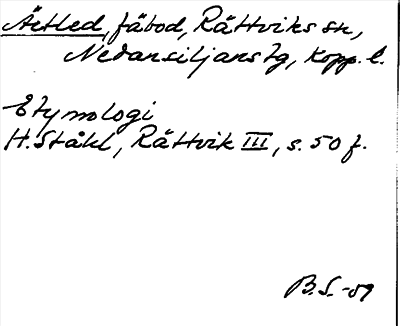 Ärtled, fäbod, Rättviks sn,
Nedansiljans tg, Kopp. l.
Etymologi
H. Ståhl, Rättvik III, s. 50 f.
B.S. -59